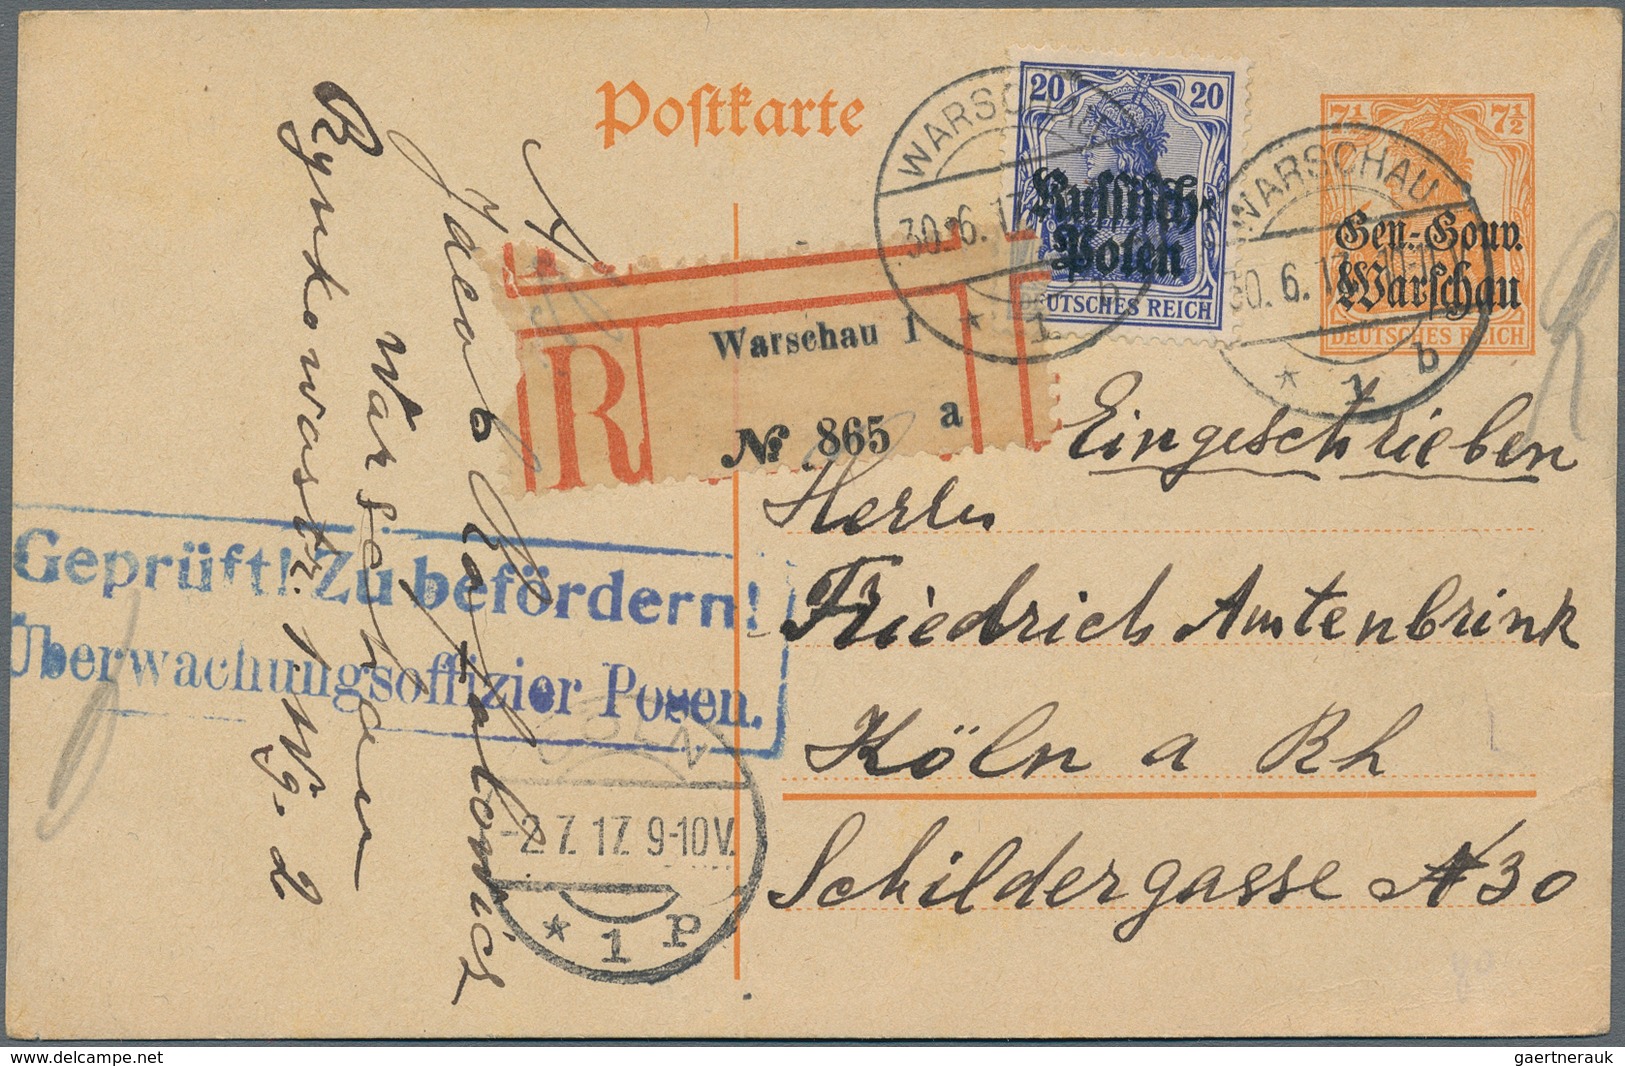 Postkarte
20 20
Russisch-
Polen
DEUTSCHES REICH
7½ 7½
Gen.-Gouv.
Warschau
DEUTSCHES REICH
WARSCHAU
30.6.17
* 1 b
WARSCHAU
30.6.17
* 1 b
R
Warschau 1
a
№ 865
R
Eingeschrieben
Herrn
Friedrich Amtenbrink
Köln a Rh
Schildergasse N 30
A.
Jacob
Warschau
Rynkowastr. 1. W 9. 2
Geprüft! Zu befördern!
Überwachungsoffizier Posen.
POSEN
-2.7.17. 9-10V.
* 1 p
www.delcampe.net
gaertnerauk